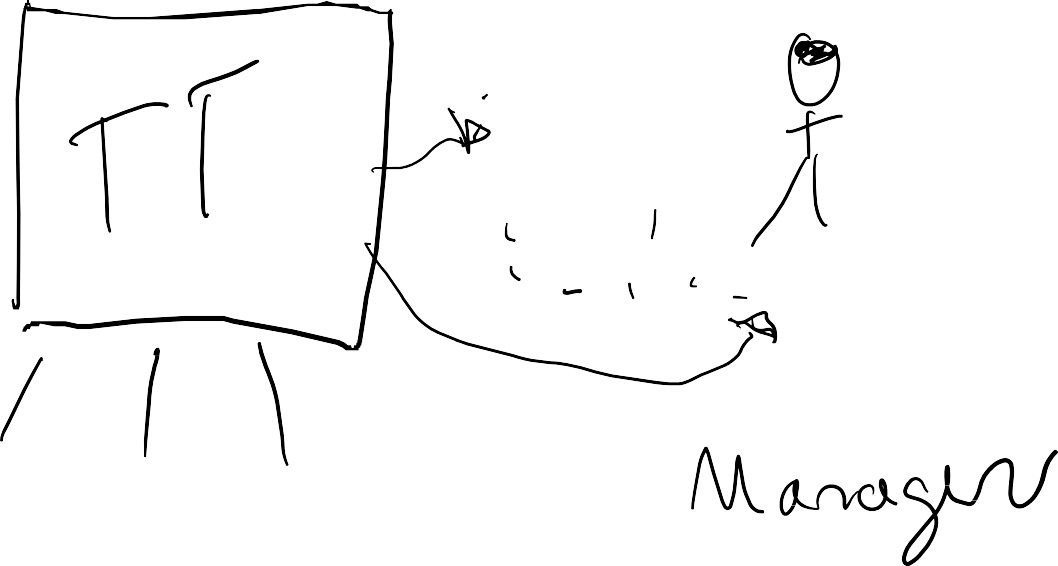 TT
Manager